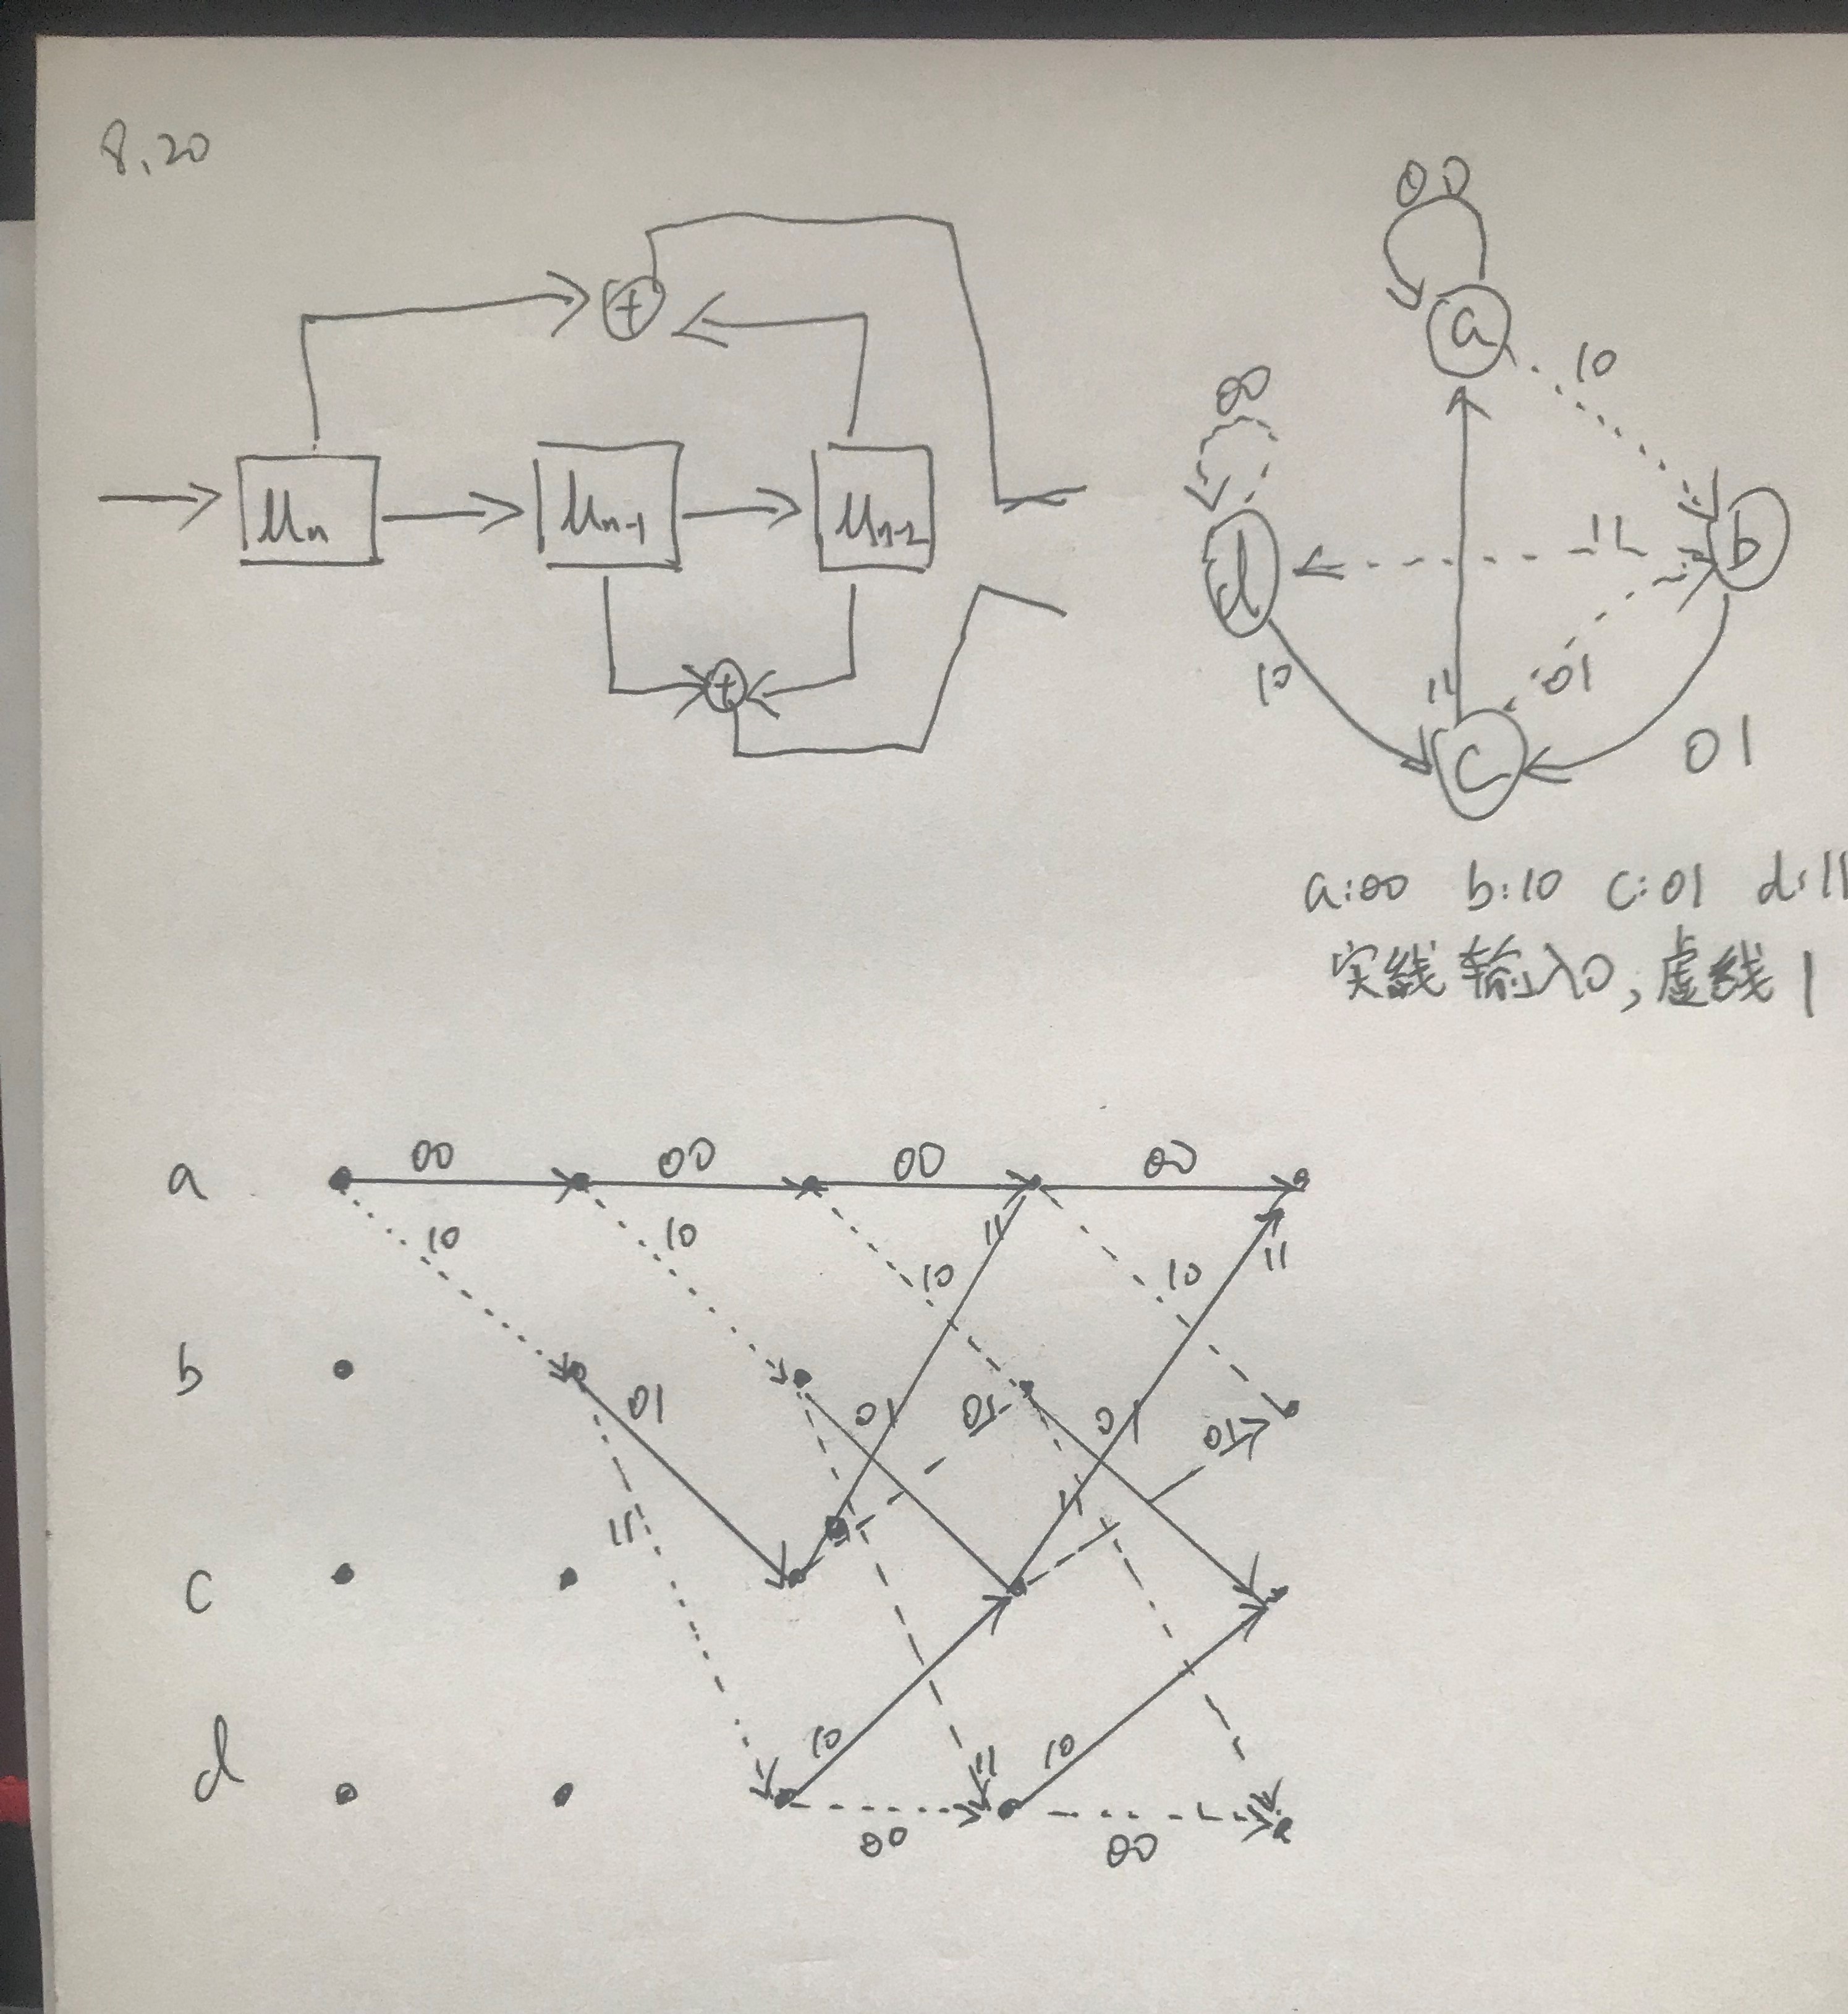 8.20
00
a
10
μn
μn-1
μn-2
00
d
11
b
10
11
01
c
01
a:00 b:10 c:01 d:11
实线输入0,虚线1
a 00 00 00 00
10 10 10 11 10 11
b
01 01 01 01 01
c
11 11
d
10 11 10
00 00